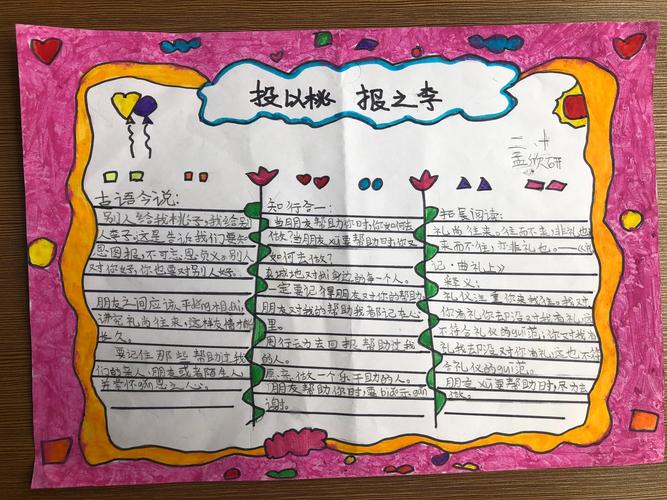 投以桃 报之李
二、十
孟欣研
古语今说:
别人给我桃子,我给别
人李子,这是告诉我们要知
恩图报,不可忘恩负义。别人
对你好,你也要对别人好。
朋友之间应该平děng相助,
讲究礼尚往来,这样友情才能
长久。
要记住那些帮助过我
们的亲人、朋友或者陌生人,
并常怀gǎn恩之人心。
知行合一:
当朋友帮助你时,你如何去
做?当朋友xū要帮助时,你又
如何去做?
真诚地对我身边的每一个人。
一定要记得朋友对你的帮助。
朋友对我的帮助我都记在心
里。
用行动去回报帮助过我
的人。
原意做一个乐于助的人。
朋友帮助你时,要biǎo示gǎn
谢。
拓展阅读:
礼尚往来。往而不来,非礼也;
来而不往,亦非礼也。——《礼
记·曲礼上》
释义:
礼仪注重你来我往。我对
你有礼,你去却没对我有礼,这也
不符合礼仪的guī范;你对我有
礼,我去却没对你有礼,也不符
合礼仪的guī范。
朋友xū要帮助时,尽力去
做。